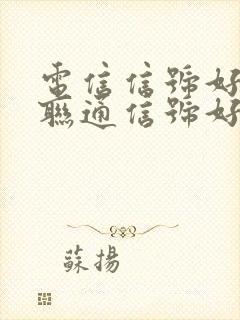 電信信號好
聯通信號好
蘇揚